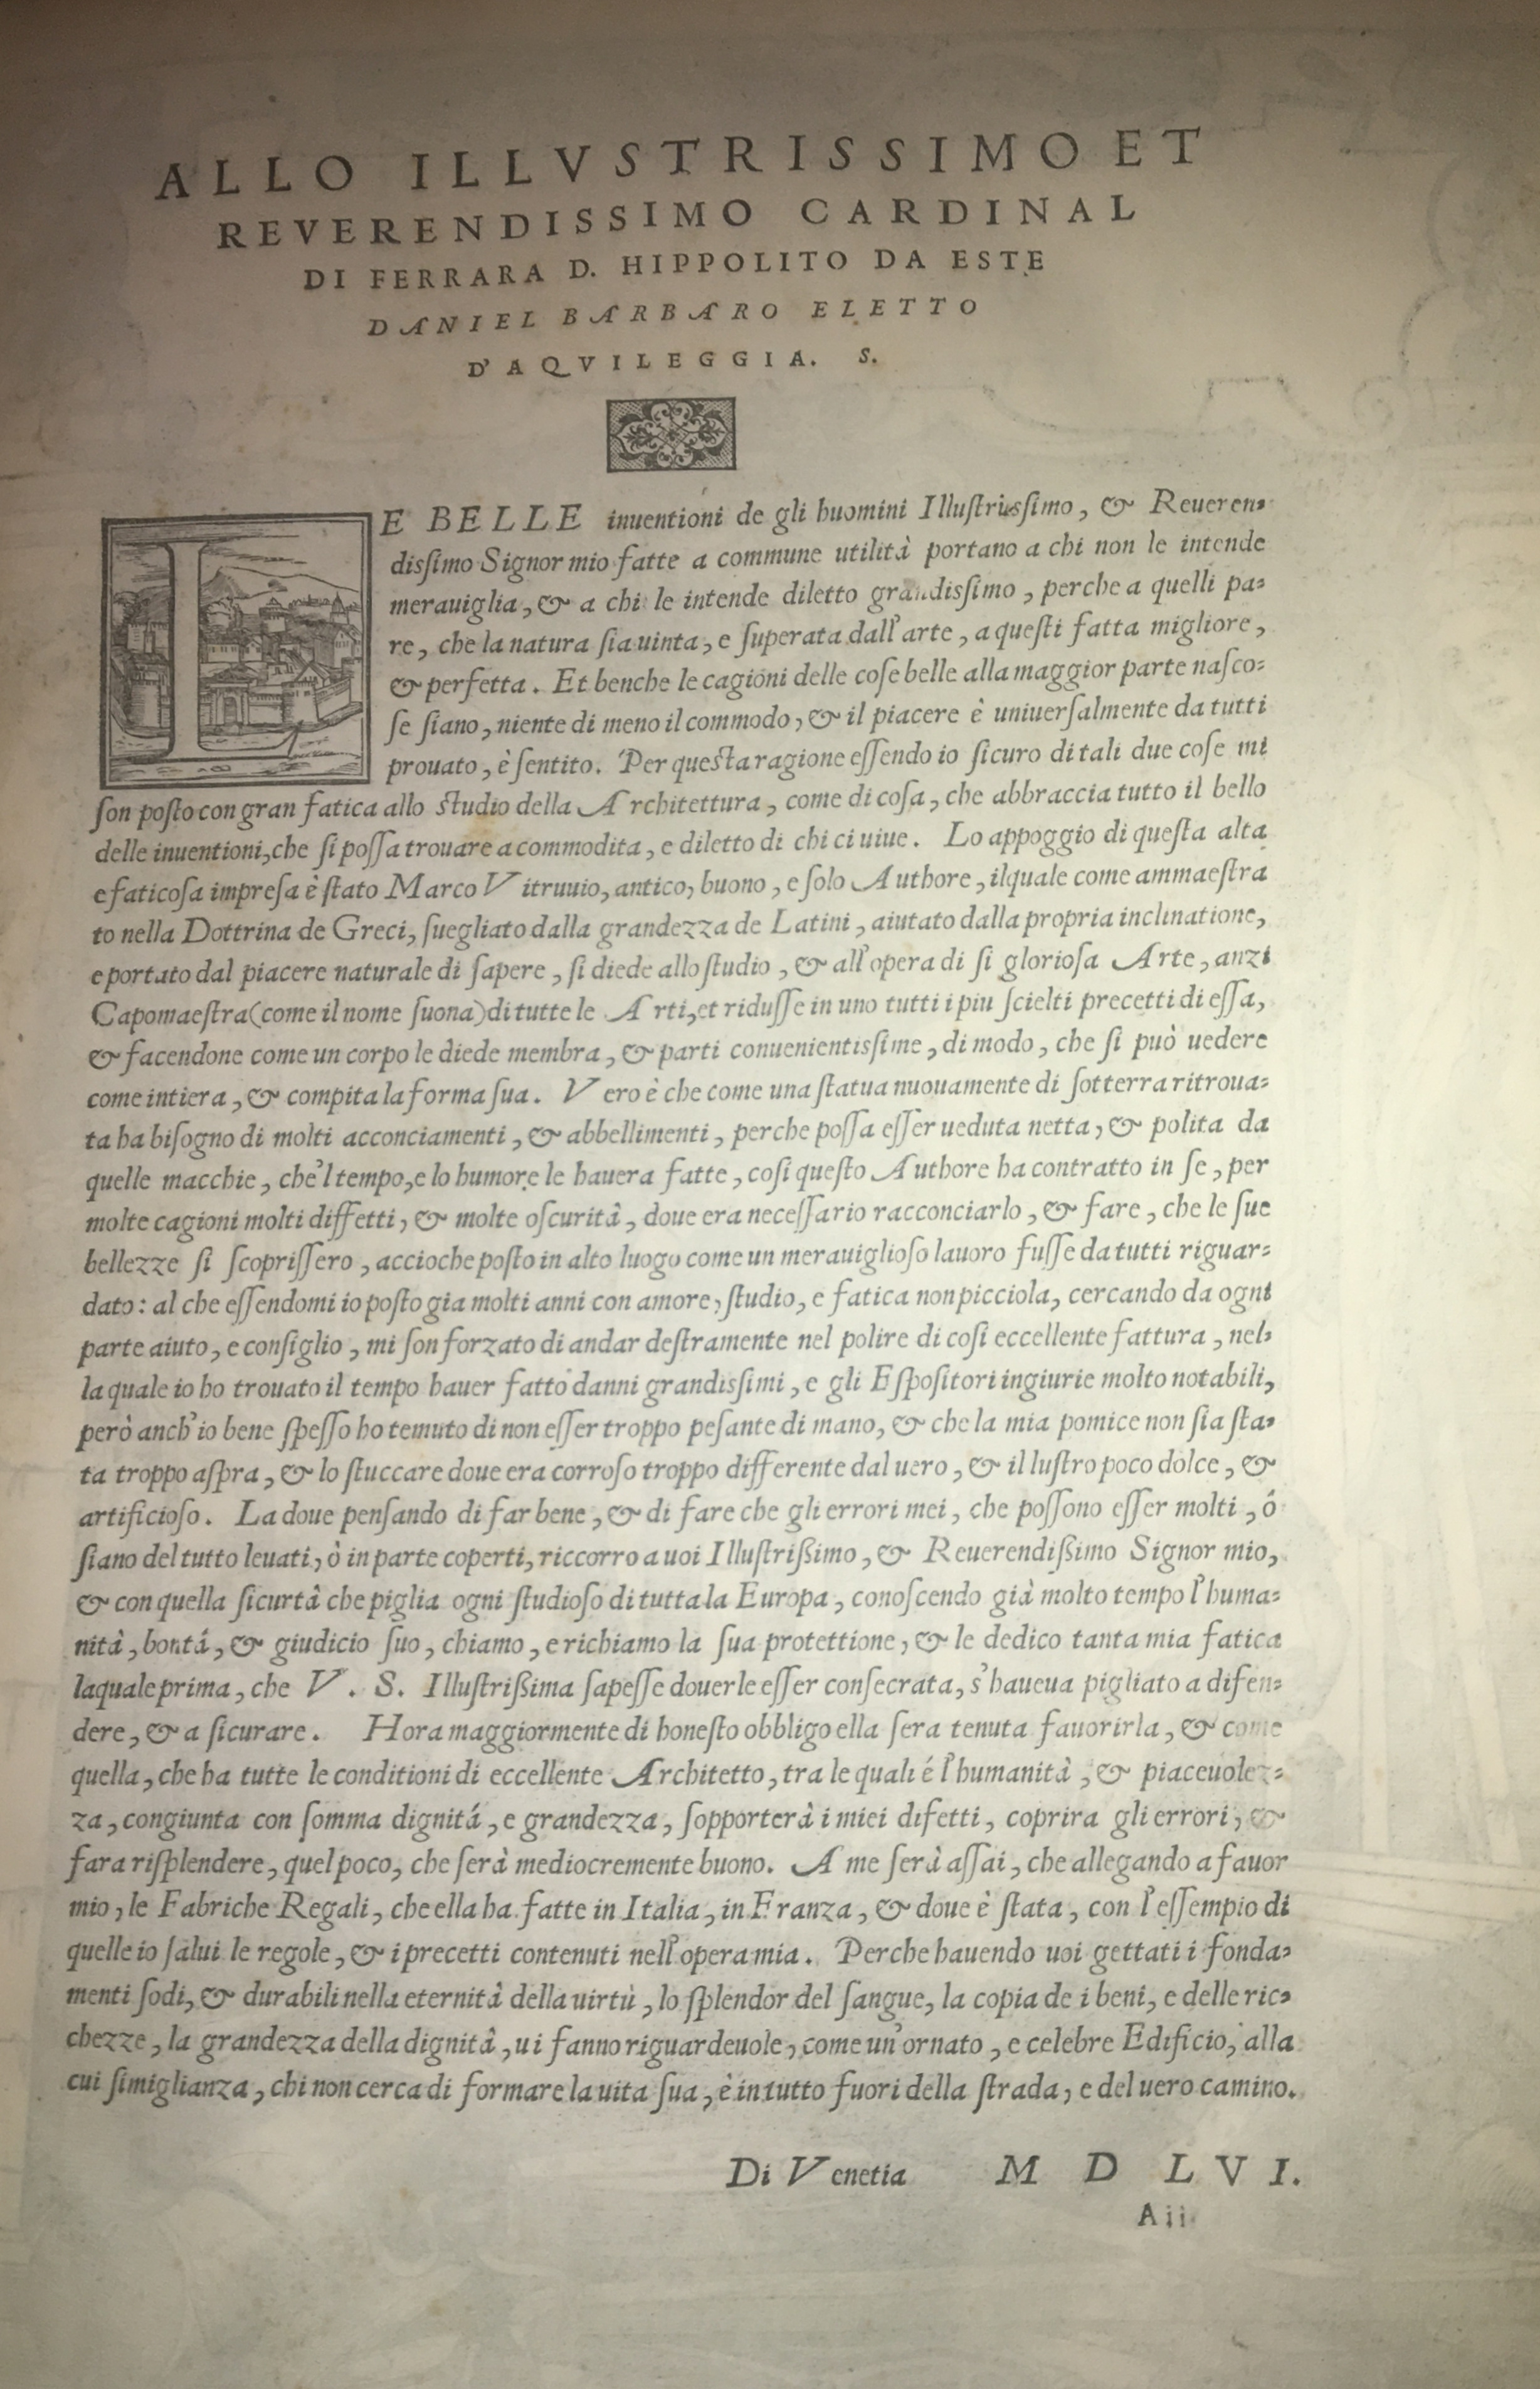 ALLO ILLVSTRISSIMO ET
REVERENDISSIMO CARDINAL
DI FERRARA D. HIPPOLITO DA ESTE
DANIEL BARBARO ELETTO
D' AQVILEGGIA. S.
LE BELLE inuentioni de gli huomini Illuſtriſſimo, & Reueren-
diſſimo Signor mio fatte a commune utilità portano a chi non le intende
merauiglia, & a chi le intende diletto grandiſſimo, perche a quelli pa-
re, che la natura ſia uinta, e ſuperata dall'arte, a queſti fatta migliore,
& perfetta. Et benche le cagioni delle coſe belle alla maggior parte naſco-
ſe ſiano, niente di meno il commodo, & il piacere è uniuerſalmente da tutti
prouato, è ſentito. Per queſta ragione eſſendo io ſicuro di tali due coſe mi
ſon poſto con gran fatica allo ſtudio della Architettura, come di coſa, che abbraccia tutto il bello
delle inuentioni, che ſi poſſa trouare a commodita, e diletto di chi ci uiue. Lo appoggio di queſta alta
e faticoſa impreſa è ſtato Marco Vitruuio, antico, buono, e ſolo Authore, ilquale come ammaeſtra
to nella Dottrina de Greci, ſuegliato dalla grandezza de Latini, aiutato dalla propria inclinatione,
e portato dal piacere naturale di ſapere, ſi diede allo ſtudio, & all'opera di ſi glorioſa Arte, anzi
Capomaeſtra (come il nome ſuona) di tutte le Arti, et riduſſe in uno tutti i piu ſcielti precetti di eſſa,
& facendone come un corpo le diede membra, & parti conuenientiſſime, di modo, che ſi può uedere
come intiera, & compita la forma ſua. Vero è che come una ſtatua nuouamente di ſotterra ritroua-
ta ha biſogno di molti acconciamenti, & abbellimenti, perche poſſa eſſer ueduta netta, & polita da
quelle macchie, che'l tempo, e lo humore le hauera fatte, coſi queſto Authore ha contratto in ſe, per
molte cagioni molti diffetti, & molte oſcuritâ, doue era neceſſario racconciarlo, & fare, che le ſue
bellezze ſi ſcopriſſero, accioche poſto in alto luogo come un merauiglioſo lauoro fuſſe da tutti riguar-
dato: al che eſſendomi io poſto gia molti anni con amore, ſtudio, e fatica non picciola, cercando da ogni
parte aiuto, e conſiglio, mi ſon forzato di andar deſtramente nel polire di coſi eccellente fattura, nel-
la quale io ho trouato il tempo hauer fatto danni grandiſſimi, e gli Eſpoſitori ingiurie molto notabili,
però anch'io bene ſpeſſo ho temuto di non eſſer troppo peſante di mano, & che la mia pomice non ſia ſta-
ta troppo aſpra, & lo ſtuccare doue era corroſo troppo differente dal uero, & il luſtro poco dolce, &
artificioſo. La doue penſando di far bene, & di fare che gli errori mei, che poſſono eſſer molti, ô
ſiano del tutto leuati, ò in parte coperti, riccorro a uoi Illuſtrißimo, & Reuerendißimo Signor mio,
& con quella ſicurtâ che piglia ogni ſtudioſo di tutta la Europa, conoſcendo già molto tempo l'huma-
nità, bontá, & giudicio ſuo, chiamo, e richiamo la ſua protettione, & le dedico tanta mia fatica
laquale prima, che V. S. Illuſtrißima ſapeſſe douerle eſſer conſecrata, s'haueua pigliato a difen-
dere, & a ſicurare. Hora maggiormente di honeſto obbligo ella ſera tenuta fauorirla, & come
quella, che ha tutte le conditioni di eccellente Architetto, tra le quali é l'humanità, & piaceuolez-
za, congiunta con ſomma dignitá, e grandezza, ſopporterà i miei difetti, coprira gli errori, &
fara riſplendere, quel poco, che ſerà mediocremente buono. A me ſerà aſſai, che allegando a fauor
mio, le Fabriche Regali, che ella ha fatte in Italia, in Franza, & doue è ſtata, con l'eſſempio di
quelle io ſalui le regole, & i precetti contenuti nell'opera mia. Perche hauendo uoi gettati i fonda-
menti ſodi, & durabili nella eternitâ della uirtù, lo ſplendor del ſangue, la copia de i beni, e delle ric-
chezze, la grandezza della dignitâ, ui fanno riguardeuole, come un'ornato, e celebre Edificio, alla
cui ſimiglianza, chi non cerca di formare la uita ſua, è in tutto fuori della ſtrada, e del uero camino.
Di Venetia M D L V I.
A ii